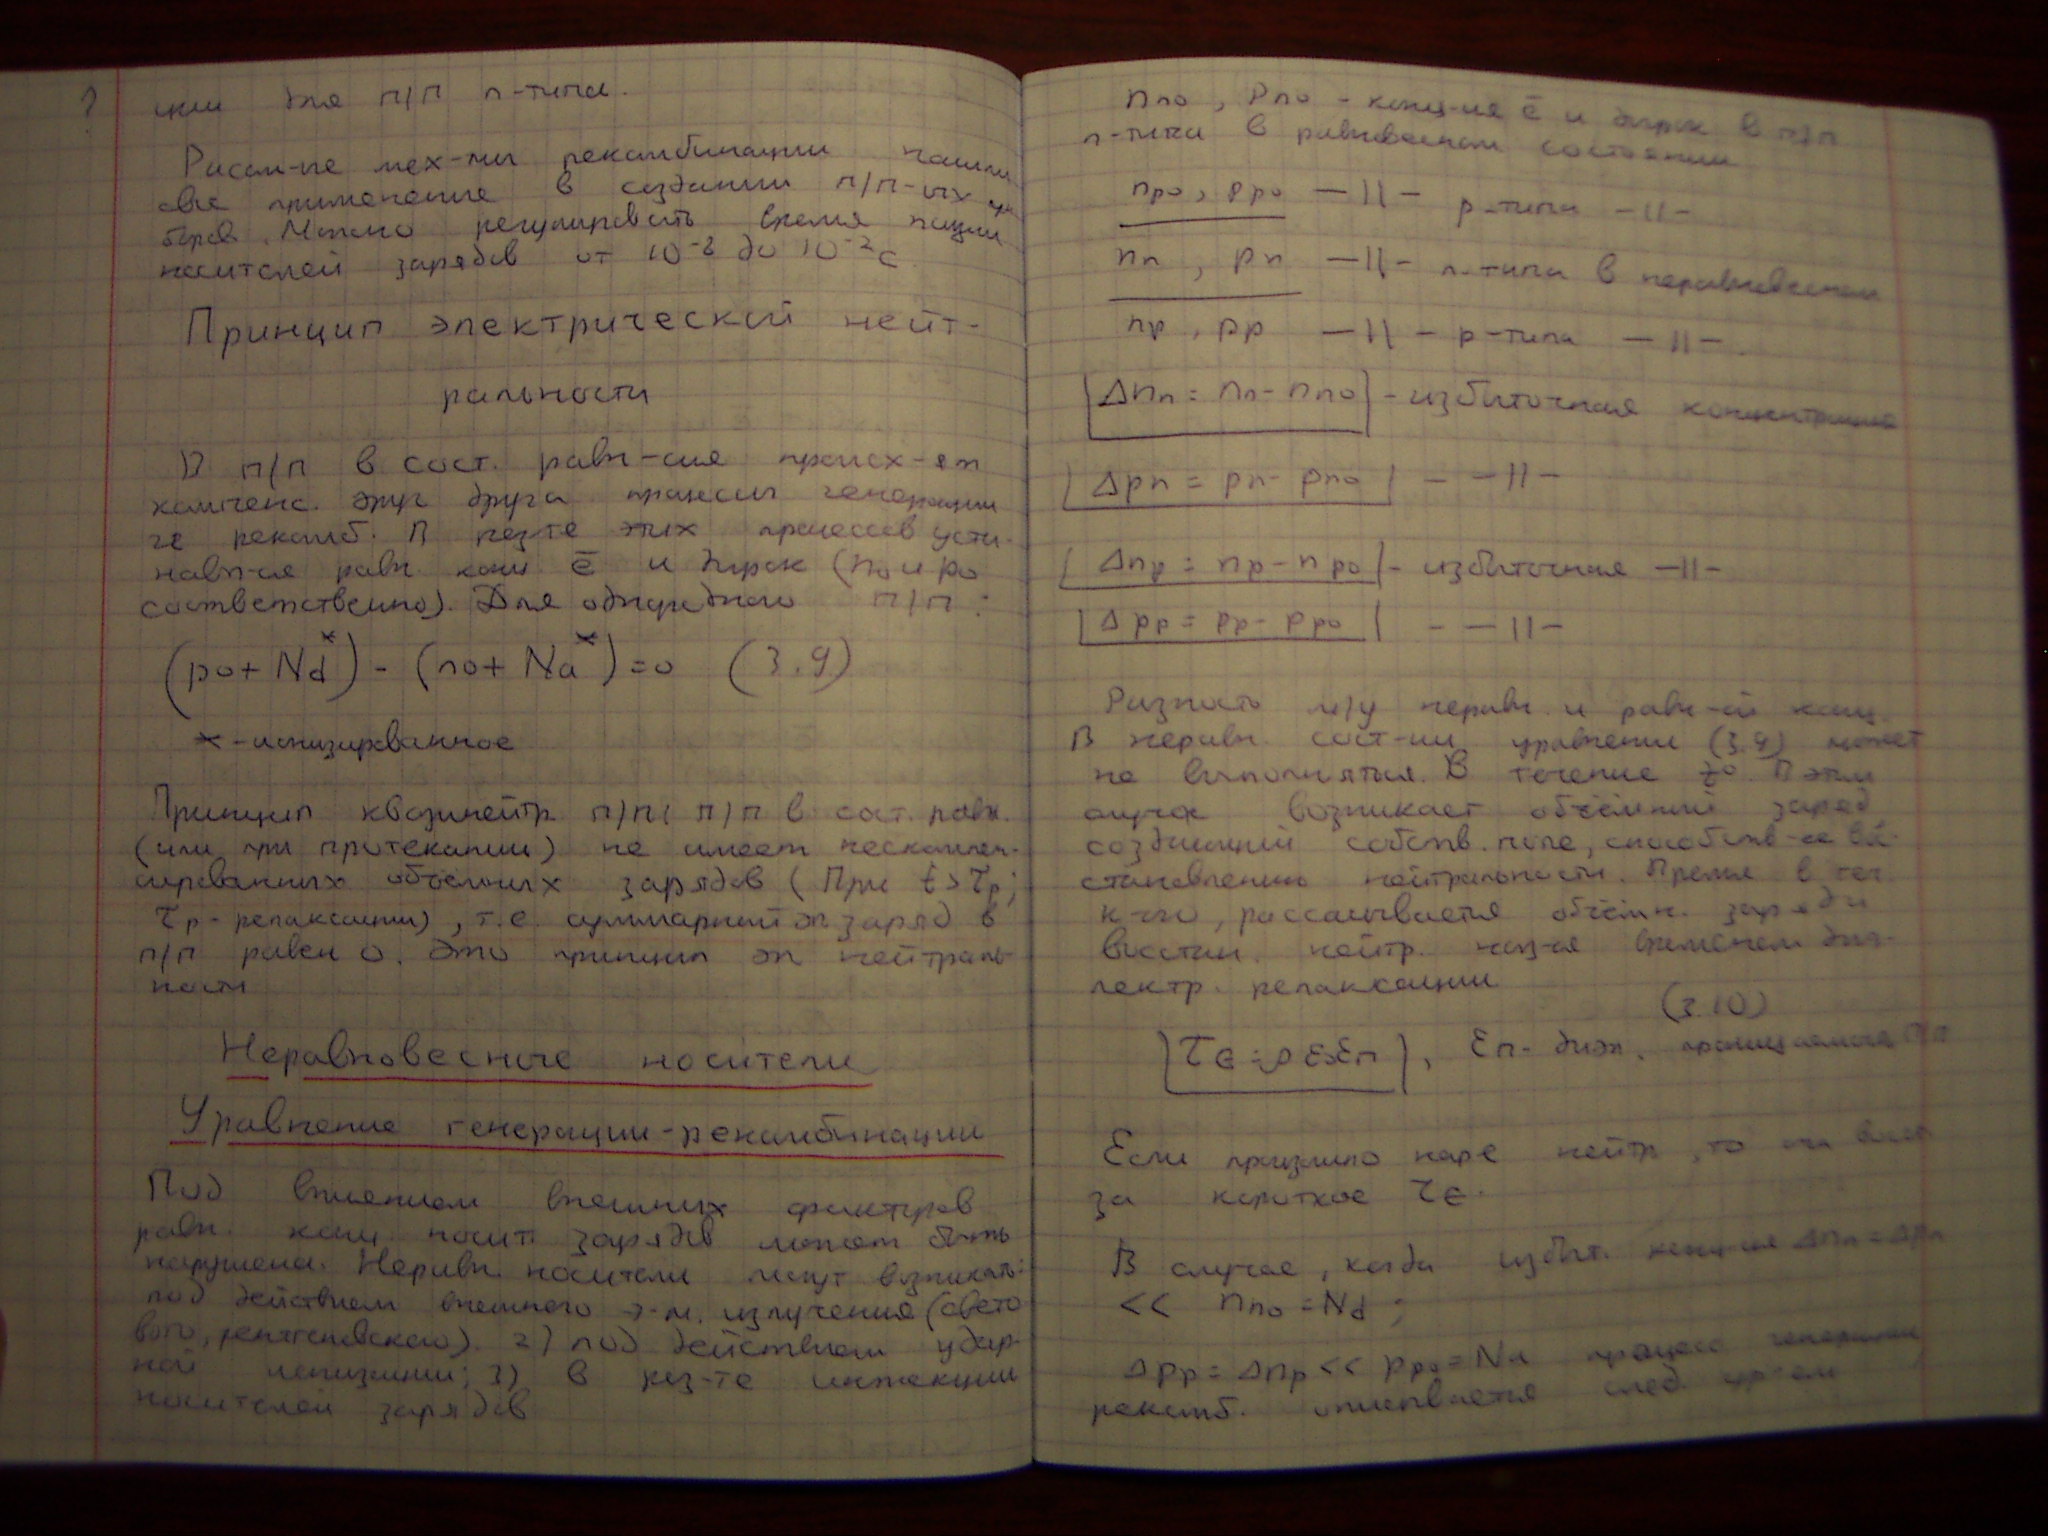 ?
ции для п/п n-типа.
Рассм-ые мех-мы рекомбинации нашли
свое применение в создании п/п-ых
боров. Можно регулировать время жизни
носителей зарядов от 10⁻⁸ до 10⁻² с
Принцип электрической нейт-
ральности
В п/п в сост. равн-сия происх-ят
компенс. друг друга процессы генерации
и рекомб. В рез-те этих процессов уста
навл-ся равн. конц ē и дырок (n₀ и p₀
соответственно). Для однородного п/п:
(p₀ + Nd*) - (n₀ + Na*) = 0 (3.9)
* - ионизированное
Принцип квазинейтр. п/п: п/п в сост. равн.
(или при протекании) не имеет нескомпен-
сированных объемных зарядов (При t > τp;
τp - релаксации), т.е. суммарный эл заряд в
п/п равен 0. Это принцип эл нейтраль-
ности
Неравновесные носители
Уравнение генерации-рекомбинации
Под влиянием внешних факторов
равн. конц. носит зарядов может быть
нарушена. Неравн. носители могут возникать:
под действием внешнего э-м. излучения (свето
вого, рентгеновского). 2) под действием удар-
ной ионизации; 3) в рез-те инжекции
носителей зарядов
nn₀, pn₀ - конц-ия ē и дырок в п/п
n-типа в равновесном состоянии
np₀, pp₀ —||— p-типа —||—
nn, pn —||— n-типа в неравновесном
np, pp —||— p-типа —||—.
Δnn = nn - nn₀ - избыточная концентрация
Δpn = pn - pn₀ - —||—
Δnp = np - np₀ - избыточная —||—
Δpp = pp - pp₀ - —||—
Разность м/у неравн. и равн-ой конц.
В неравн. сост-ии уравнении (3.9) может
не выполнятся. В течение В этом
случае возникает объёмный заряд
создающий собств. поле, способств-ее во-
становлению нейтральности. Время в теч.
к-го, рассасывается объёмн. заряд и
восстан. нейтр. наз-ся временем диэ-
лектр. релаксации
(3.10)
τε = ρ ε₀ εп, εп - диэл. проницаемость п/п
Если произошло нар-е нейтр, то она восст
за короткое τε.
В случае, когда избыт. конц-ия Δnn = Δpn
<< nn₀ = Nd;
Δpp = Δnp << pp₀ = Na процесс генерации
рекомб. описывается след. ур-ем